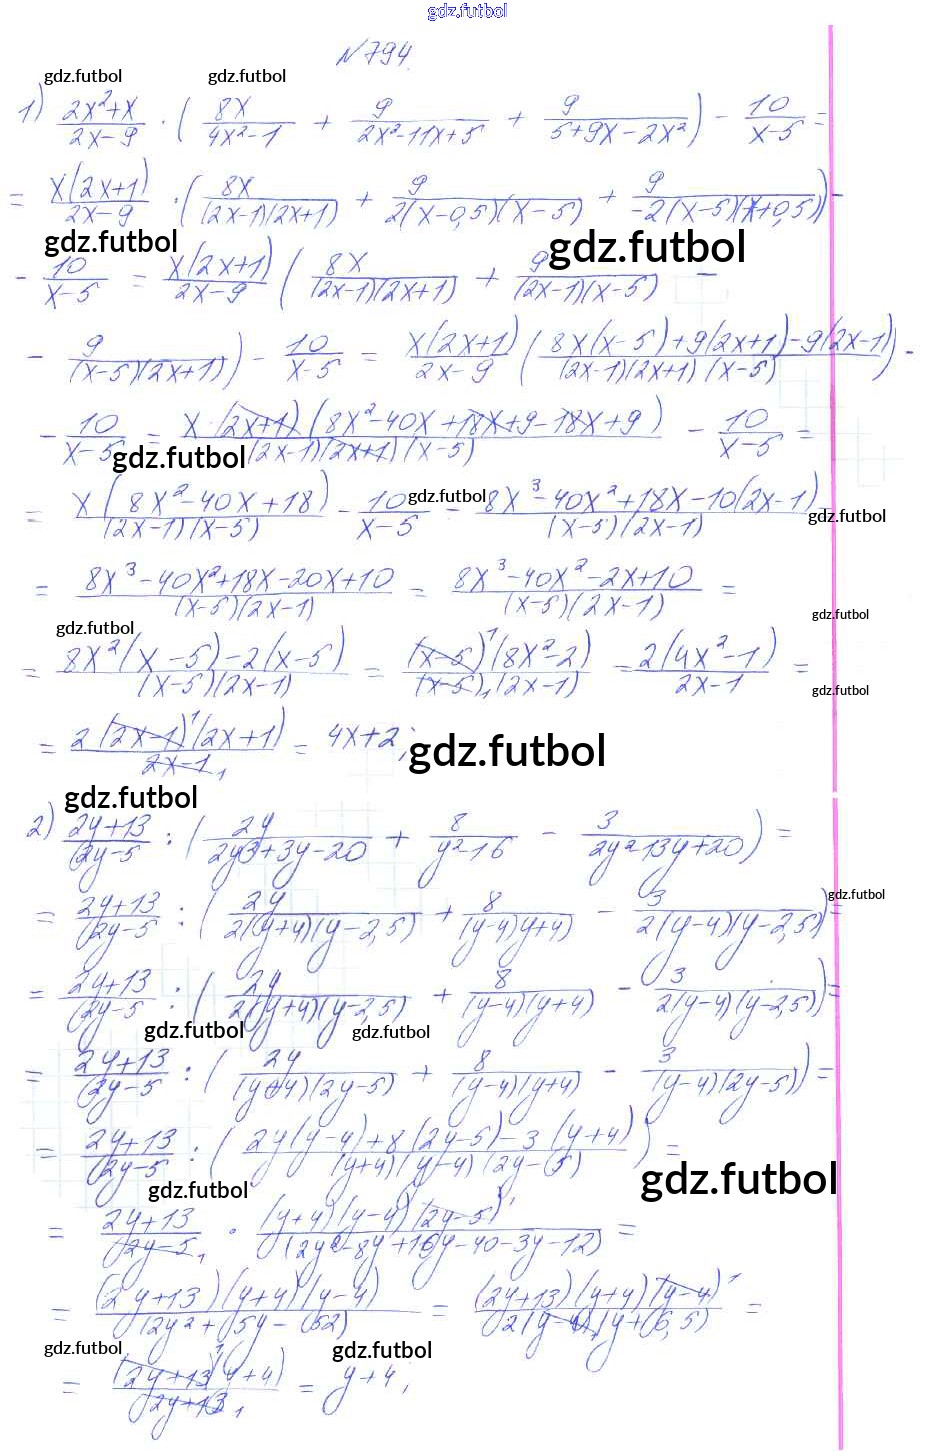 gdz.futbol
№794.
gdz.futbol gdz.futbol
1) (2x²+x)/(2x−9) · (8x/(4x²−1) + 9/(2x²−11x+5) + 9/(5+9x−2x²)) − 10/(x−5) =
= x(2x+1)/(2x−9) · (8x/((2x−1)(2x+1)) + 9/(2(x−0,5)(x−5)) + 9/(−2(x−5)(x+0,5))) −
gdz.futbol gdz.futbol
− 10/(x−5) = x(2x+1)/(2x−9) (8x/((2x−1)(2x+1)) + 9/((2x−1)(x−5)) −
− 9/((x−5)(2x+1))) − 10/(x−5) = x(2x+1)/(2x−9) ((8x(x−5)+9(2x+1)−9(2x−1))/((2x−1)(2x+1)(x−5))) −
− 10/(x−5) = x·(2x+1)(8x²−40x+18x+9−18x+9)/((2x−1)(2x+1)(x−5)) − 10/(x−5) =
gdz.futbol
= x(8x²−40x+18)/((2x−1)(x−5)) − 10/(x−5) = (8x³−40x²+18x−10(2x−1))/((x−5)(2x−1)) =
gdz.futbol gdz.futbol
= (8x³−40x²+18x−20x+10)/((x−5)(2x−1)) = (8x³−40x²−2x+10)/((x−5)(2x−1)) =
gdz.futbol gdz.futbol
= (8x²(x−5)−2(x−5))/((x−5)(2x−1)) = (x−5)¹(8x²−2)/((x−5)₁(2x−1)) = 2(4x²−1)/(2x−1) =
gdz.futbol
= 2(2x−1)¹(2x+1)/(2x−1)₁ = 4x+2;
gdz.futbol
gdz.futbol
2) (2y+13)/(2y−5) : (2y/(2y3+3y−20) + 8/(y²−16) − 3/(2y²−13y+20)) =
gdz.futbol
= (2y+13)/(2y−5) : (2y/(2(y+4)(y−2,5)) + 8/((y−4)(y+4)) − 3/(2(y−4)(y−2,5))) =
= (2y+13)/(2y−5) : (2y/(2(y+4)(y−2,5)) + 8/((y−4)(y+4)) − 3/(2(y−4)(y−2,5))) =
gdz.futbol gdz.futbol
= (2y+13)/(2y−5) : (2y/((y+4)(2y−5)) + 8/((y−4)(y+4)) − 3/((y−4)(2y−5))) =
= (2y+13)/(2y−5) : ((2y(y−4)+8(2y−5)−3(y+4))/((y+4)(y−4)(2y−5))) =
gdz.futbol gdz.futbol
= (2y+13)/(2y−5)₁ · (y+4)(y−4)(2y−5)¹/(2y²−8y+16y−40−3y−12) =
= (2y+13)(y+4)(y−4)/(2y²+5y−52) = (2y+13)(y+4)(y−4)¹/(2(y−4)₁(y+6,5)) =
gdz.futbol gdz.futbol
= (2y+13)¹(y+4)/(2y+13)₁ = y+4;